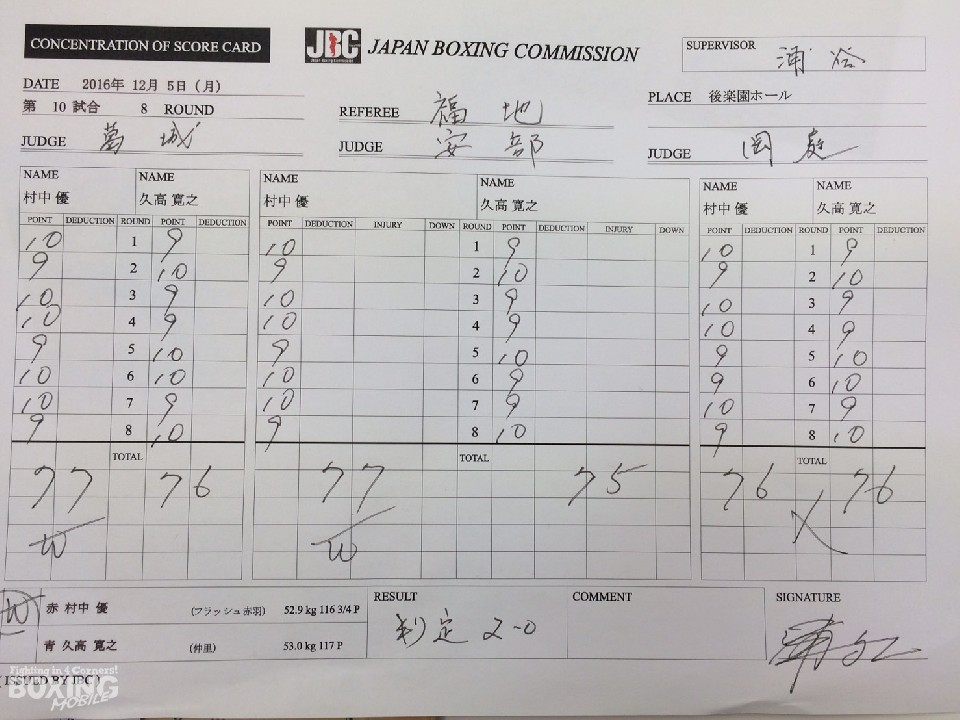 CONCENTRATION OF SCORE CARD
JBC JAPAN BOXING COMMISSION
SUPERVISOR 浦谷
DATE 2016年 12月 5日（月）
第 10 試合 8 ROUND
REFEREE 福地
PLACE 後楽園ホール
JUDGE 葛城
JUDGE 安部
JUDGE 岡庭
NAME NAME NAME NAME NAME NAME
村中 優 久高 寛之 村中 優 久高 寛之 村中 優 久高 寛之
POINT DEDUCTION ROUND POINT DEDUCTION POINT DEDUCTION INJURY DOWN ROUND POINT DEDUCTION INJURY DOWN POINT DEDUCTION ROUND POINT DEDUCTION
10 1 9 10 1 9 10 1 9
9 2 10 9 2 10 9 2 10
10 3 9 10 3 9 10 3 9
10 4 9 10 4 9 10 4 9
9 5 10 9 5 10 9 5 10
10 6 10 10 6 9 9 6 10
10 7 9 10 7 9 10 7 9
9 8 10 9 8 10 9 8 10
TOTAL TOTAL TOTAL
77 76 77 75 76 76
W W X
W 赤 村中 優 （フラッシュ赤羽） 52.9 kg 116 3/4 P
青 久高 寛之 （仲里） 53.0 kg 117 P
RESULT
判定 2-0
COMMENT
SIGNATURE
Fighting in 4 Corners!
BOXING
MOBILE
ISSUED BY JBC